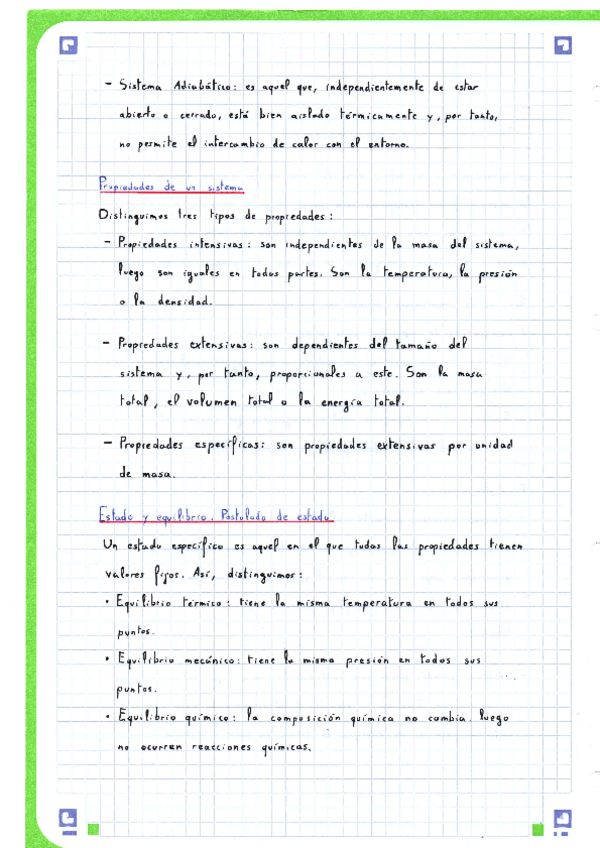 - Sistema Adiabático: es aquel que, independientemente de estar
abierto o cerrado, está bien aislado térmicamente y, por tanto,
no permite el intercambio de calor con el entorno.
Propiedades de un sistema
Distinguimos tres tipos de propiedades:
- Propiedades intensivas: son independientes de la masa del sistema,
luego son iguales en todas partes. Son la temperatura, la presión
o la densidad.
- Propiedades extensivas: son dependientes del tamaño del
sistema y, por tanto, proporcionales a este. Son la masa
total, el volumen total o la energía total.
- Propiedades específicas: son propiedades extensivas por unidad
de masa.
Estado y equilibrio. Postulado de estado
Un estado específico es aquel en el que todas las propiedades tienen
valores fijos. Así, distinguimos:
• Equilibrio térmico: tiene la misma temperatura en todos sus
puntos.
• Equilibrio mecánico: tiene la misma presión en todos sus
puntos.
• Equilibrio químico: la composición química no cambia. luego
no ocurren reacciones químicas.